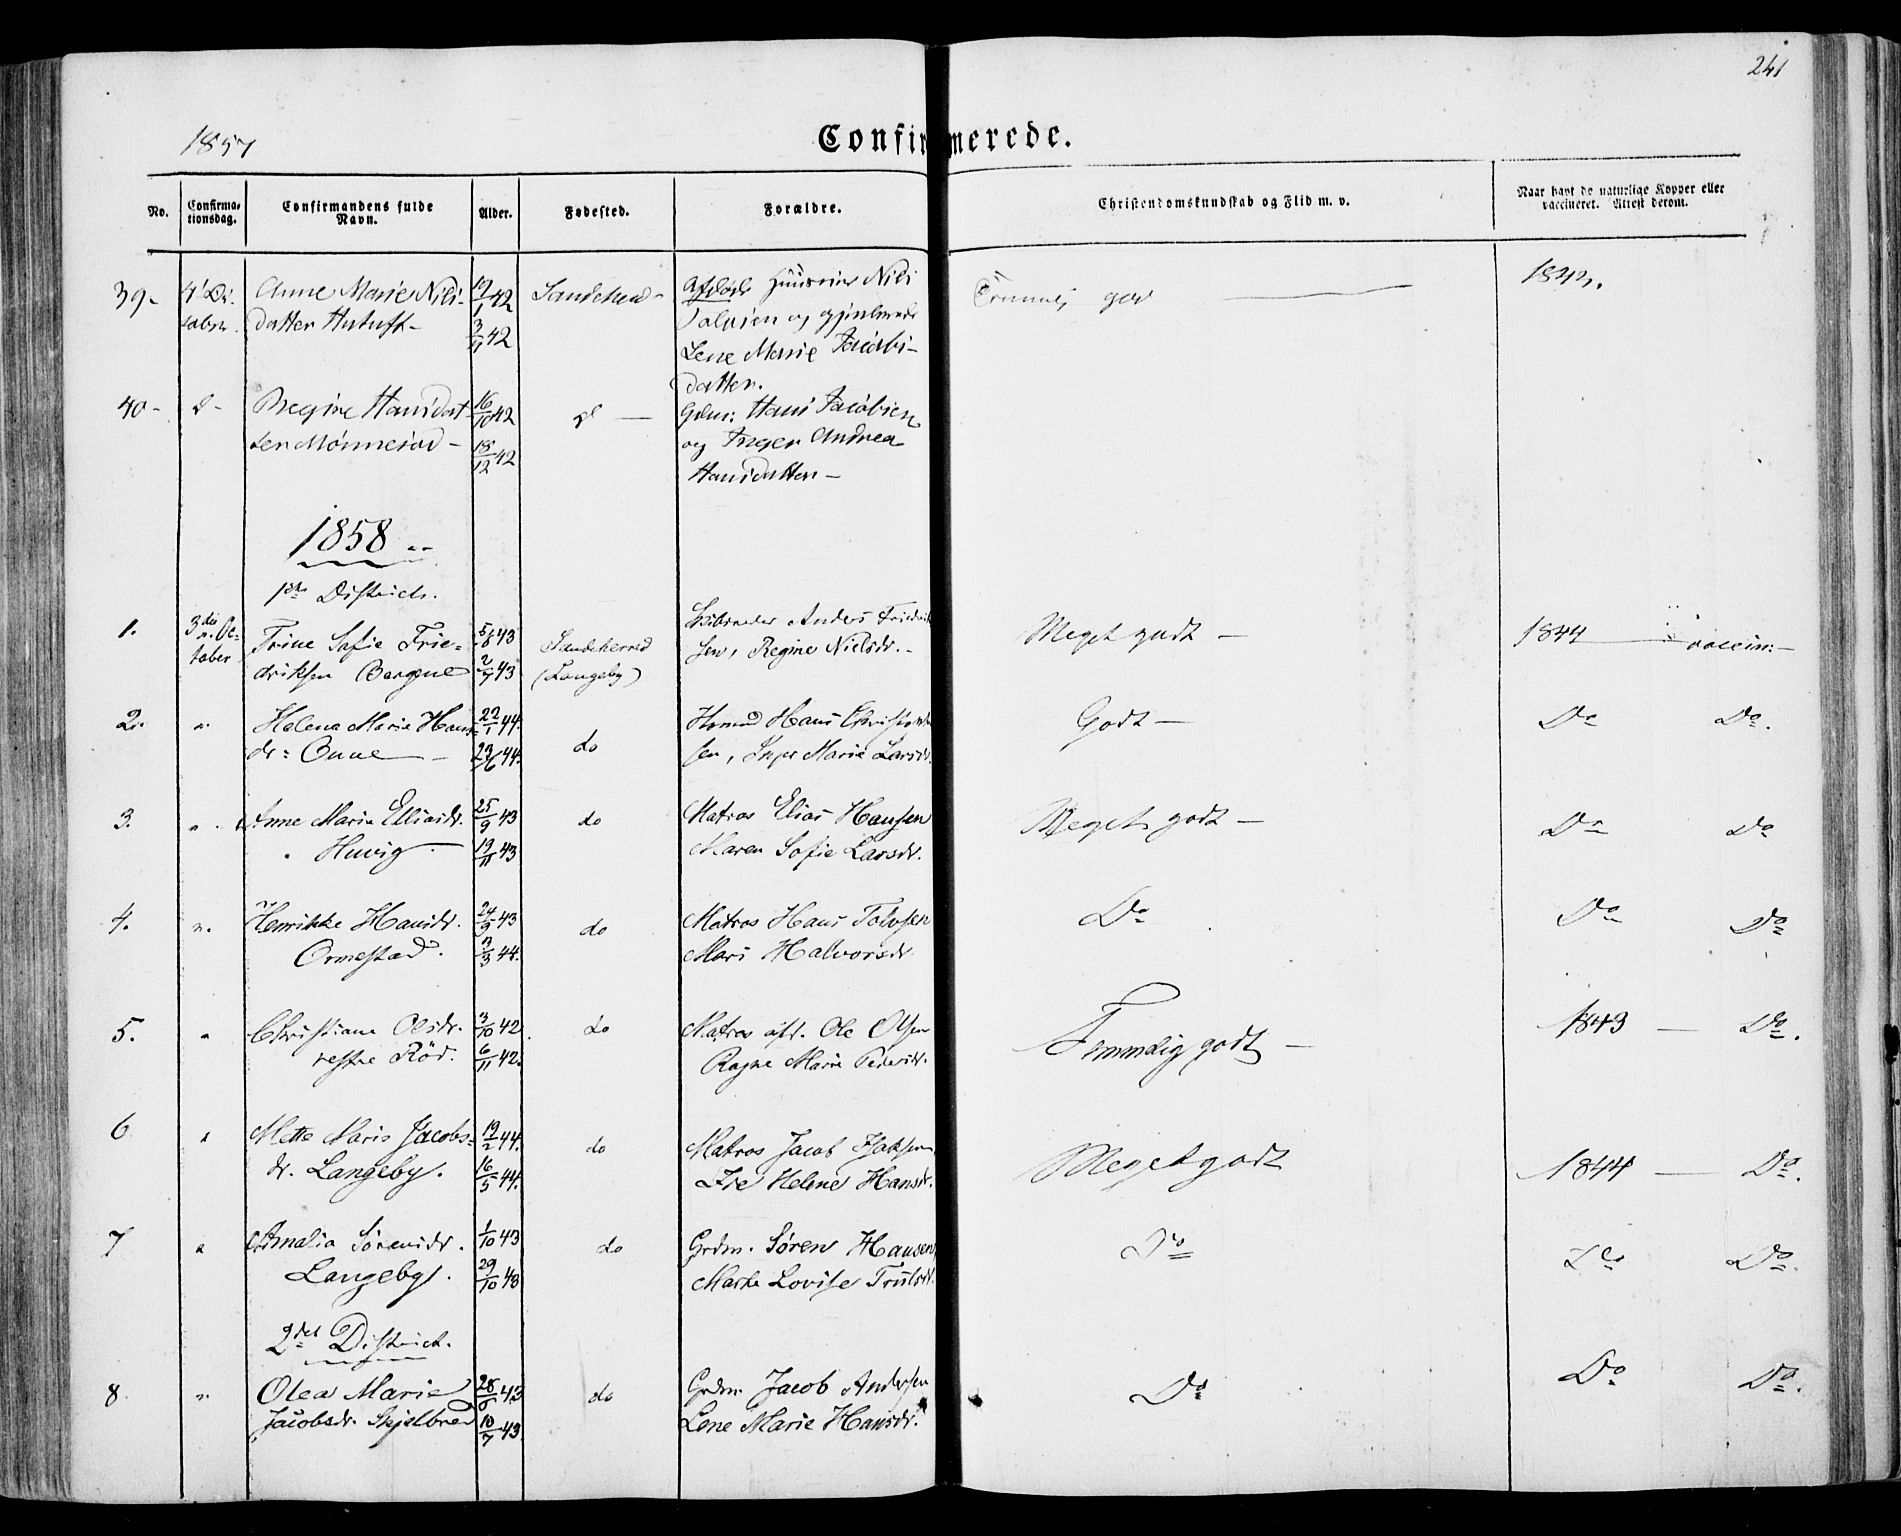 241
1857
Confirmerede.
No.
Confirma-
tionsdag.
Confirmandens fulde
Navn.
Alder.
Fødested.
Forældre.
Christendomskundskab og Flid m. v.
Naar havt de naturlige Kopper eller
vaccineret. Attest derom.
39-
Anne Marie Nils-
datter
19/1 42
3/4 42
Sandeherred
Nils
og gjenlevende
Lene Marie Jacobs-
datter.
184
40-
d-
Regine Hansdat
ter
16/10 42
18/12 42
d
Gdm: Hans Jacobsen
og Inger Andrea
Hansdatter-
1858
1ste District.
1.
3die
October
Trine Sofie Frie-
driksen
5/6 43
2/7 43
Sandeherred
(Langeby)
Anders Friedrik
sen, Regine Nielsdr.-
Meget godt -
1844
vaccin:-
2.
"
Helena Maria Hans
dr:
22/1 44.
23/6 44.
do
Husmd Hans Christian
sen, Inger Maria Larsdr.
Godt -
Do
Do.
3.
"
Anne Maria Elliasdr.
25/9 43
19/11 43
do
Matros Elias Hansen
Maren Sofie Larsdr.
Meget godt -
Do
Do
4.
"
Henrikke Hansdr.
Ormestad.
24/9 43
3/3 44.
do
Matros Hans Tolvsen
Mari Halvorsdr.
Do
Do
Do
5.
"
Christiane Olsdr.
vestre Röd.
3/10 42.
6/11 42.
do
Matros afd. Ole Olsen
Ragne Marie Pedersdr.
godt -
1843
Do.
6
"
Mette Maris Jacobs-
dr. Langeby.
19/2 44.
16/5 44.
do
Matros Jacob Isaksen
Helene Hansdr.
Meget godt
1844
Do.
7
"
Amalia Sörensdr.
Langeby.
1/10 43
29/10 43
do
Grdm. Sören Hansen,
Marte Lovise Trulsdr.
Do
Do
Do.
2det District.
8
"
Olea Marie
Jacobsdr. Skjelbred
28/6 43
10/7 43
do
Grdm. Jacob Andersen
Lene Marie Hansdr.
Do
Do
Do.